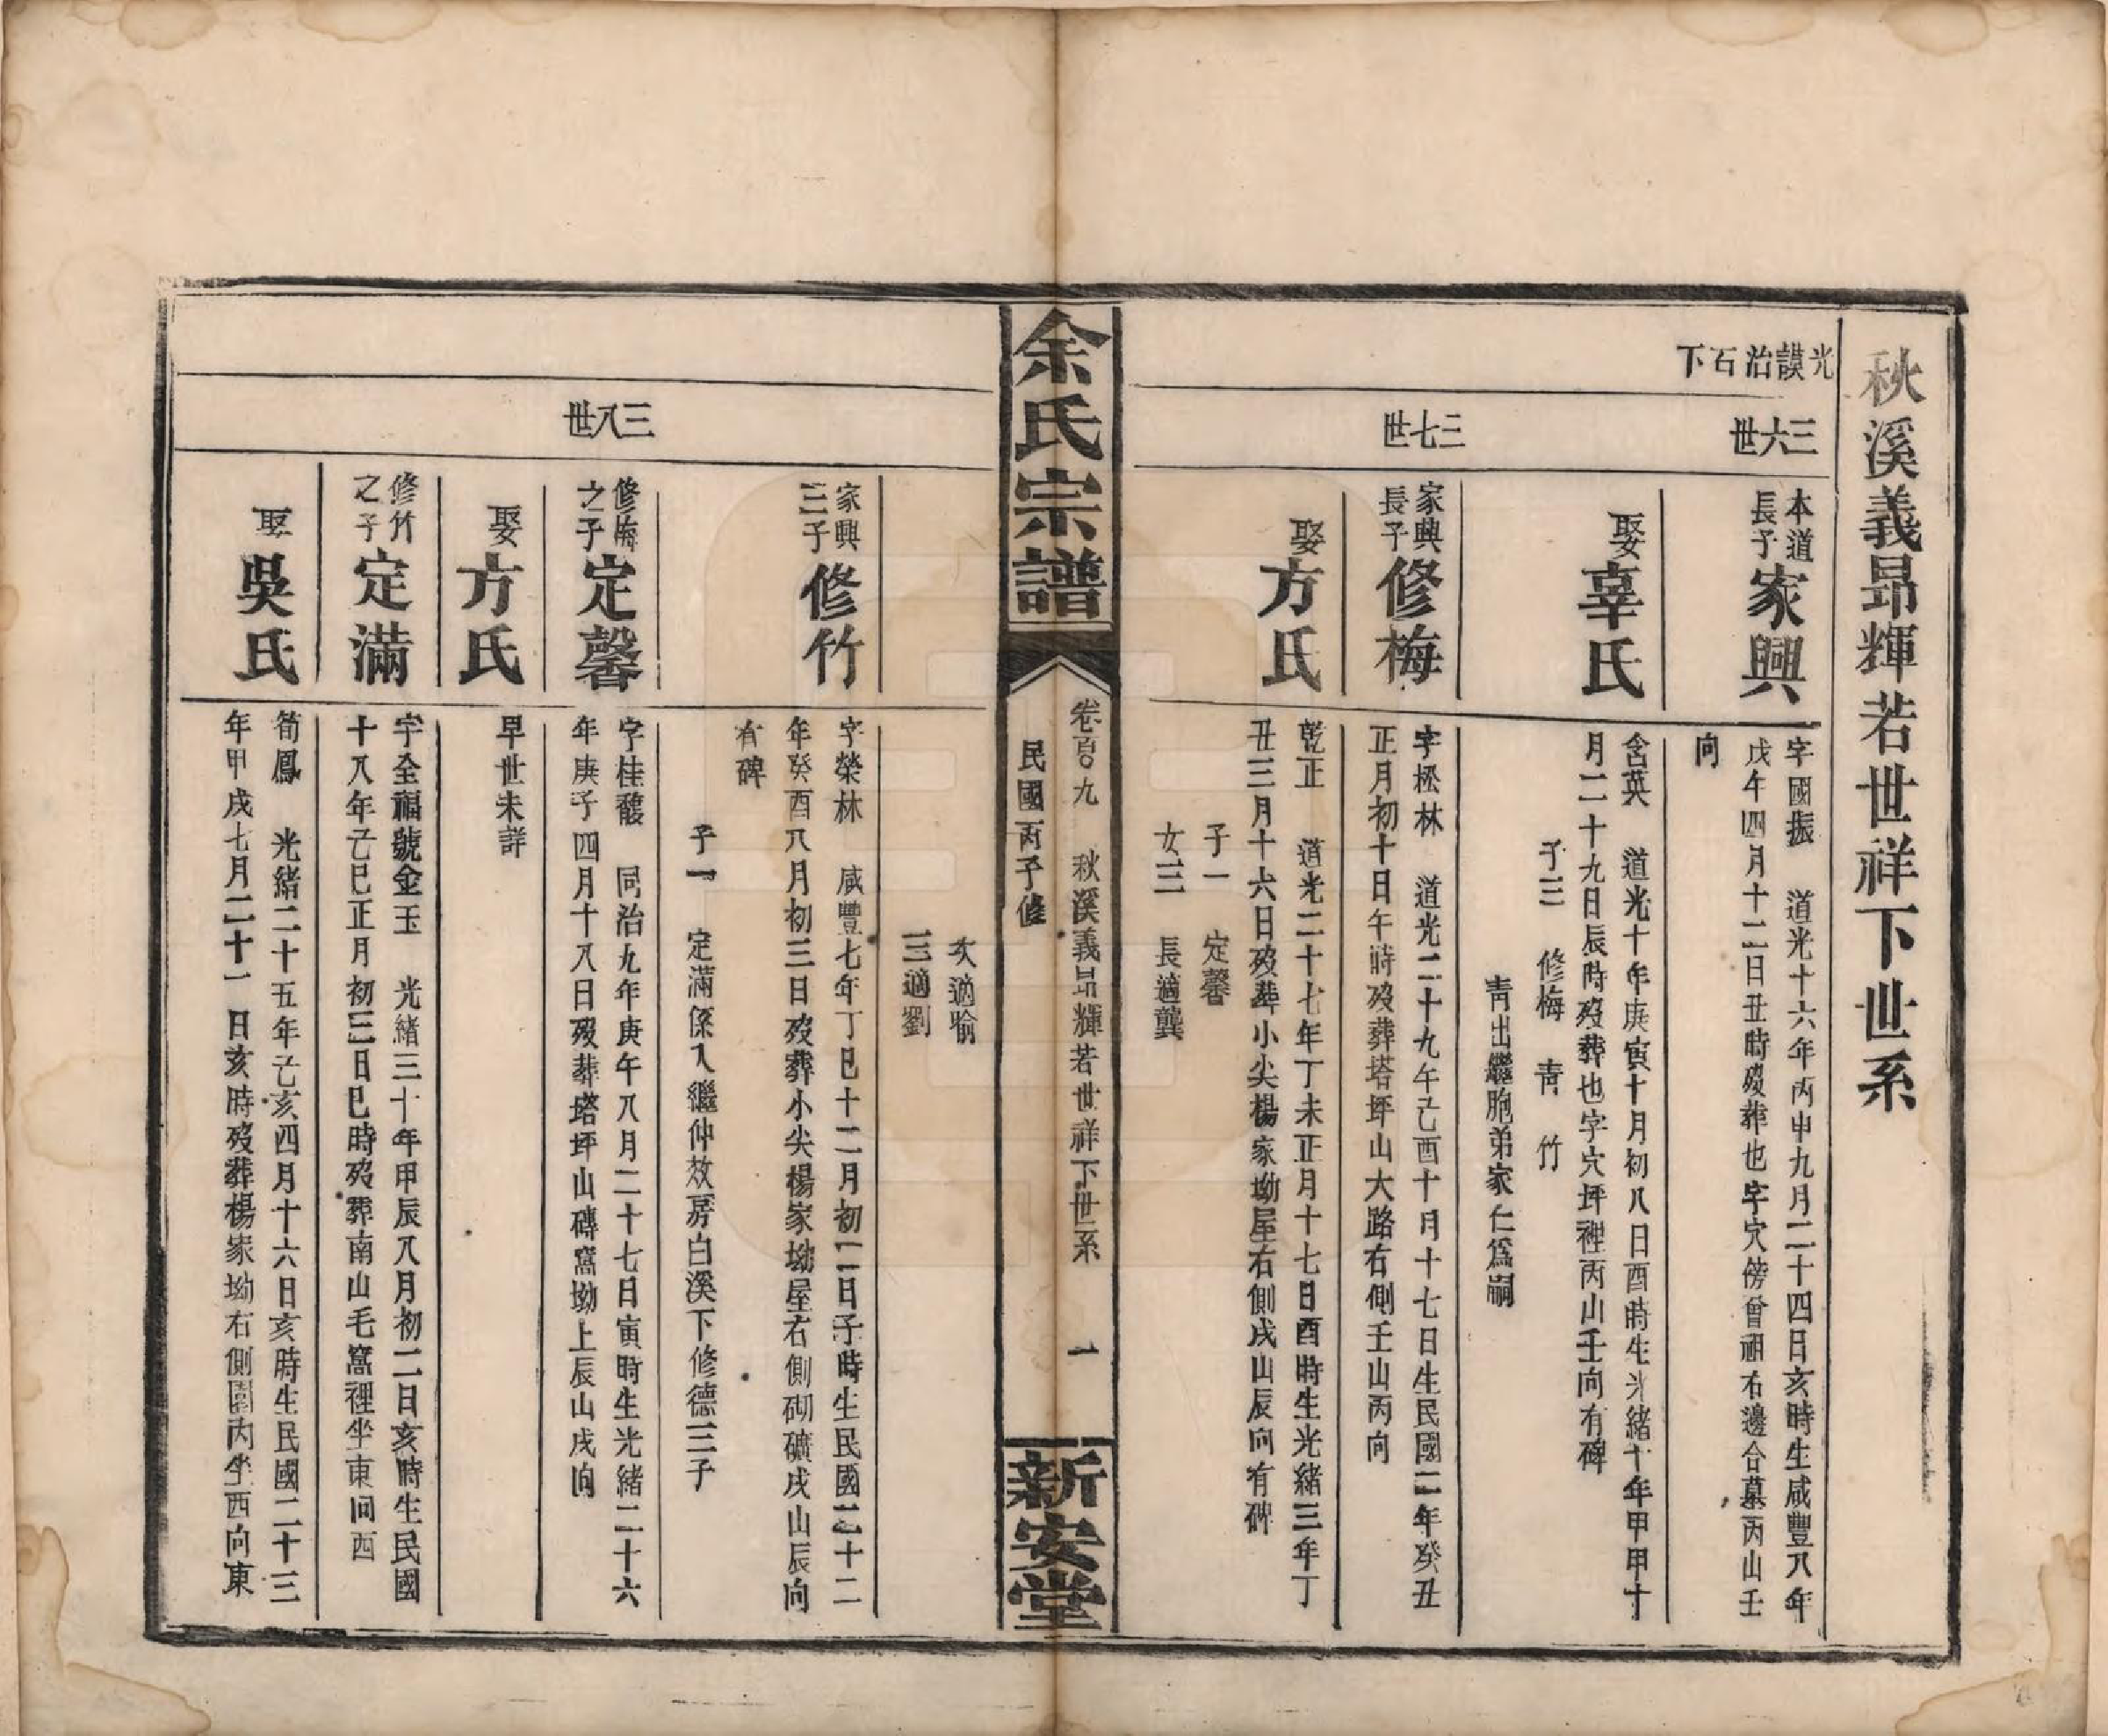 秋溪義昻輝若世祥下世系
光謨治石下
三六世
本道長子家興
字國振　道光十六年丙申九月二十四日亥時生咸豐八年
戊午四月十二日丑時歿葬也字穴傍曾祖右邊合墓丙山壬
向
娶辜氏
含英　道光十年庚寅十月初八日酉時生光緒十年甲申十
月二十九日辰時歿葬也字穴坪裡丙山壬向有碑
子三　修梅　靑　竹
靑出繼胞弟家仁爲嗣
三七世
家興長子修梅
字松林　道光二十九年己酉十月十七日生民國二年癸丑
正月初十日午時歿葬塔坪山大路右側壬山丙向
娶方氏
乾正　道光二十七年丁未正月十七日酉時生光緒三年丁
丑三月十六日歿葬小尖楊家坳屋右側戌山辰向有碑
子一　定馨
女三　長適龔
余氏宗譜
卷百九　秋溪義昻輝若世祥下世系　一
民國丙子修
新安堂
次適喻
三適劉
家興三子修竹
字榮林　咸豐七年丁巳十二月初二日子時生民國二十二
年癸酉八月初三日歿葬小尖楊家坳屋右側砌礦戌山辰向
有碑
子一　定滿係入繼仲效房白溪下修德三子
三八世
修梅之子定馨
字桂馥　同治九年庚午八月二十七日寅時生光緒二十六
年庚子四月十八日歿葬塔坪山磚窩坳上辰山戌向
娶方氏
早世未詳
修竹之子定滿
字全福號金玉　光緒三十年甲辰八月初二日亥時生民國
十八年己巳正月初三日巳時歿葬南山毛窩裡坐東向西
娶吳氏
筍鳳　光緒二十五年己亥四月十六日亥時生民國二十三
年甲戌七月二十一日亥時歿葬楊家坳右側園內坐西向東